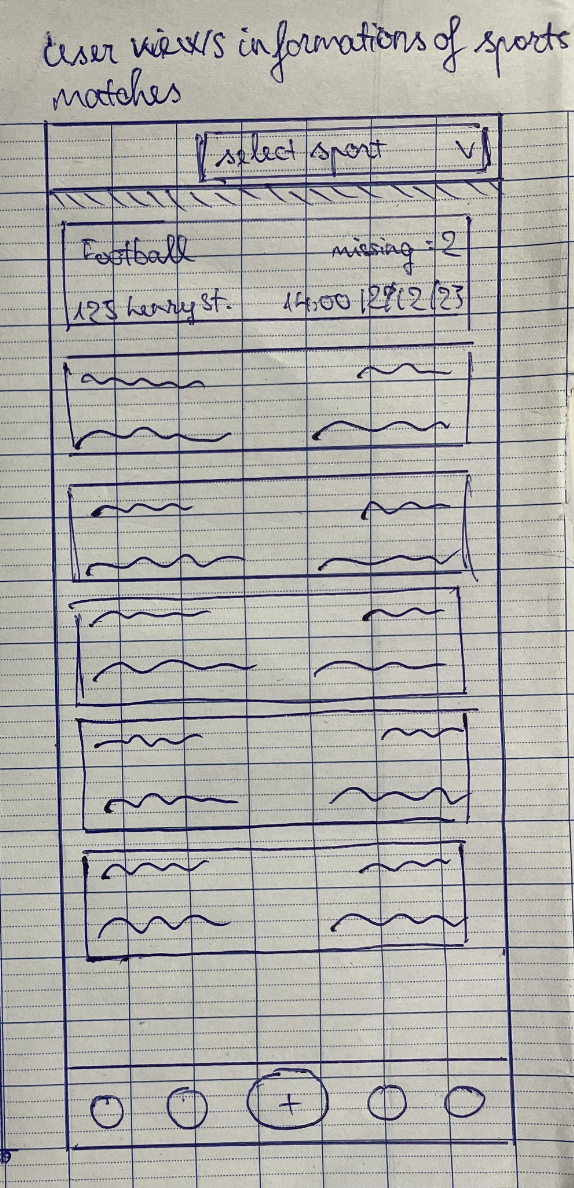 User views informations of sports
matches
select sport V
Football missing : 2
123 henry st. 14:00 | 27/12/23
+